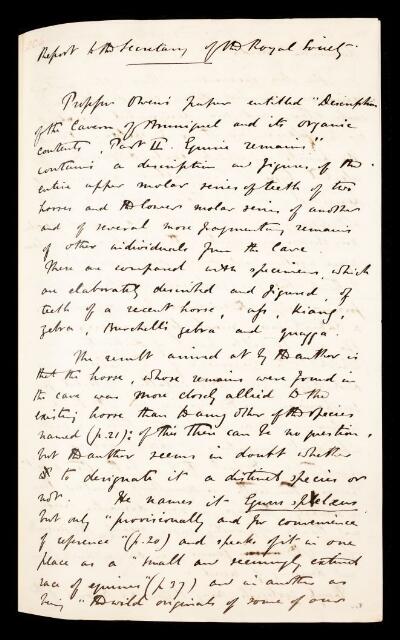 Report to the Secretary of the Royal Society.
Professor Owen's paper entitled "Description
of the Cavern of Bruniquel and its organic
contents, Part II. Equine remains"
contains a description and figures of the
entire upper molar series of teeth of two
horses and the lower molar series of another
and of several more fragmentary remains
of other individuals from the Cave.
These are compared with specimens, which
are elaborately described and figured, of
teeth of a recent horse, ass, Kiang,
zebra, Burchell's zebra and quagga.
The result arrived at by the author is
that the horse, whose remains were found in
the cave was more closely allied to the
existing horse than to any other of the species
named (p. 21): of this there can be no question,
but the author seems in doubt whether
to designate it a distinct species or
not. He names it Equus spelæus
but only "provisionally and for convenience
of reference" (p. 20) and speaks of it in one
place as a "small and seemingly extinct
race of equines" (p 37) and in another as
being "the wild originals of some of our